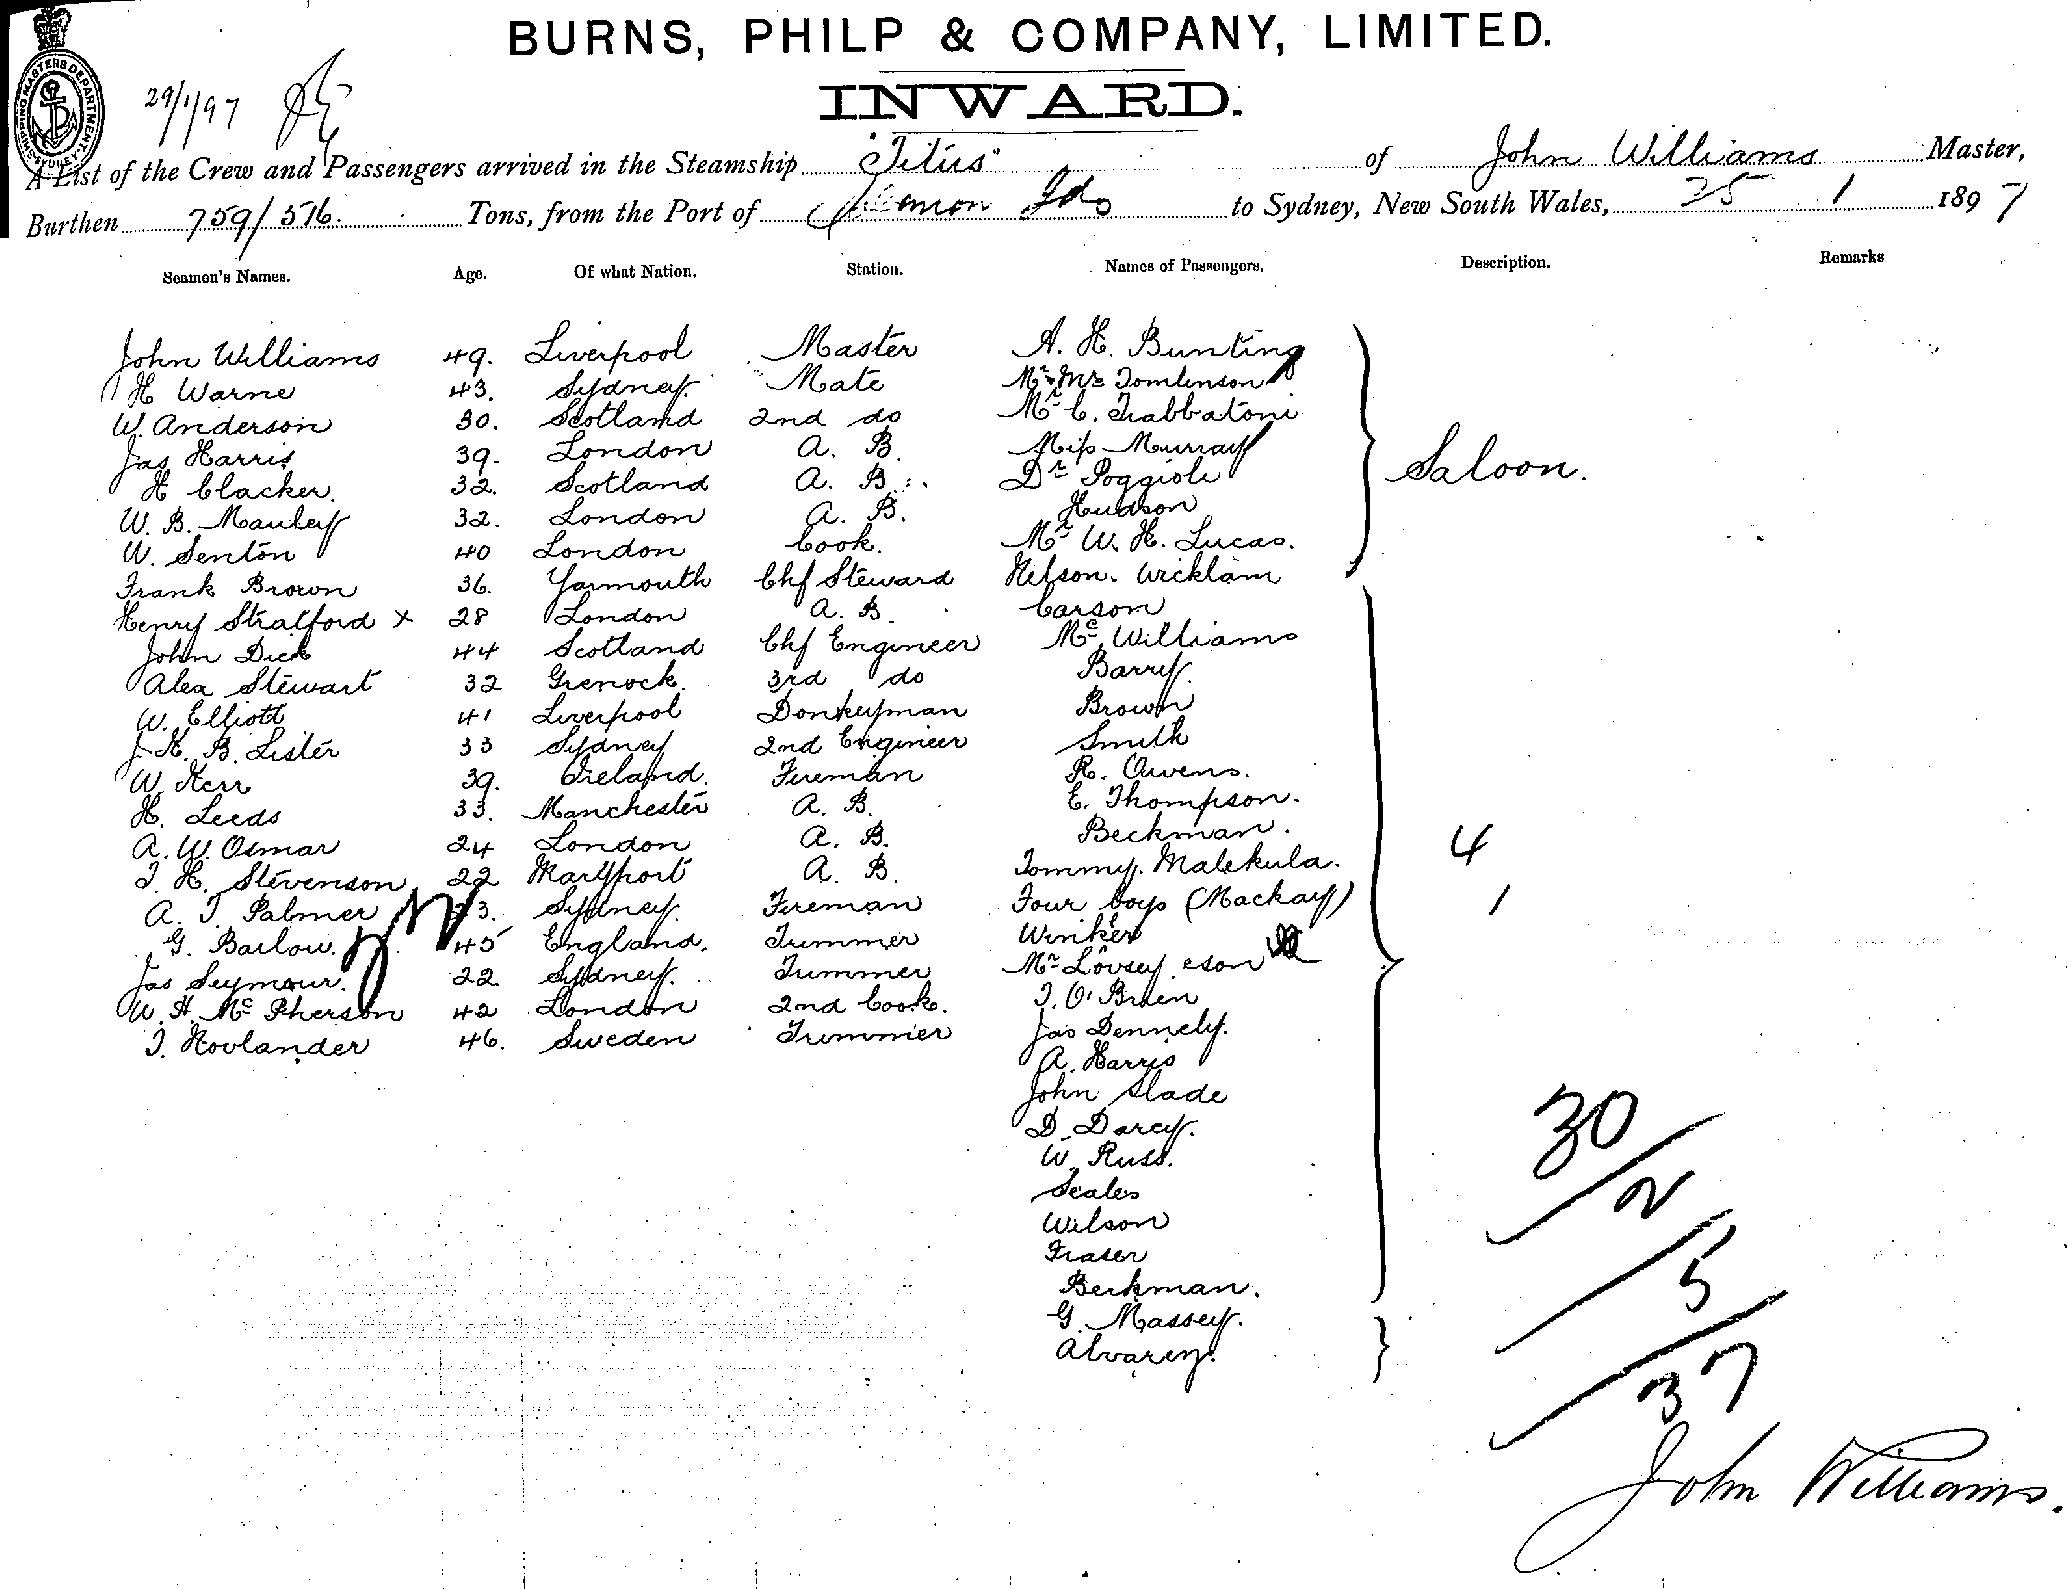 BURNS, PHILP & COMPANY, LIMITED.
INWARD.
SHIPPING MASTERS DEPARTMENT SYDNEY
29/1/97
A List of the Crew and Passengers arrived in the Steamship Titus of John Williams Master,
Burthen 759/576. Tons, from the Port of Solomon Ids to Sydney, New South Wales, 25 1 1897
Seamen's Names. Age. Of what Nation. Station. Names of Passengers. Description. Remarks
John Williams 49. Liverpool Master A. H. Bunting
H Warne 43. Sydney. Mate Mr & Mrs Tomlinson
W. Anderson 30. Scotland 2nd do Mr C. Trabbatoni
Jas Harris 39. London A. B. Miss Murray
H Clacker. 32. Scotland A. B. Dr Poggioli Saloon.
W. B. Manley 32. London A. B. Hudson
W. Senton 40 London Cook. Mr W. H. Lucas.
Frank Brown 36. Yarmouth Chf Steward Nelson. Wickham
Henry Stratford x 28 London A. B. Carson
John Dick 44 Scotland Chf Engineer Mc Williams
Alex Stewart 32 Grenock. 3rd do Barry.
W. Elliott 41 Liverpool Donkeyman Brown
J. H. B. Lister 33 Sydney 2nd Engineer Smith
W. Kerr 39. Ireland. Fireman R. Owens.
H. Leeds 33. Manchester A. B. E. Thompson.
A. W. Osmar 24 London A. B. Beckman. 4
T. H. Stevenson 22 Maryport A. B. Tommy. Malekula.
A. T. Palmer 23. Sydney. Fireman Four boys (Mackay) 1
G. Barlow. 45 England. Trimmer Winker
Jas Seymour. 22 Sydney. Trimmer Mr Lovsey & son
W. H. Mc Pherson 42 London 2nd Cook. T. O'Brien
T. Hovlander 46. Sweden Trimmer Jas Dennely.
A. Harris
John Slade
D. Darcy.
W. Russ.
Scales
Wilson
Fraser
Berkman.
G. Massey.
Alvarez.
30
2
5
37
John Williams.